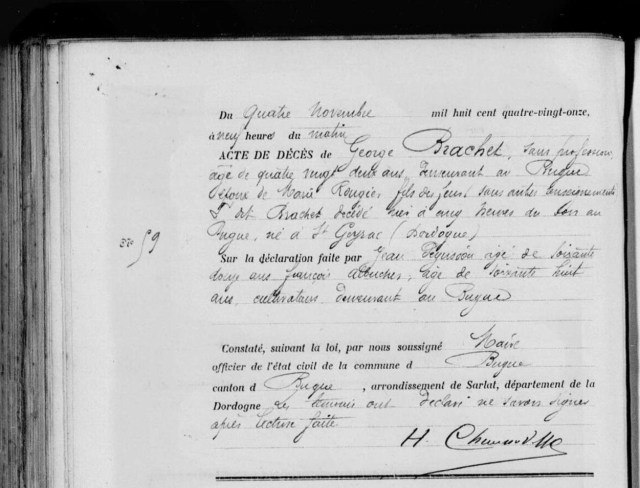 Du quatre novembre mil huit cent quatre-vingt-onze,
à neuf heures du matin
ACTE DE DÉCÈS de George Brachet, sans profession
âgé de quatre vingt deux ans, demeurant au Bugue
époux de Marie Rougier fils des feus sans autres renseignements
Le dit Brachet décédé hier à cinq heures du soir au
Bugue, né à St Geyrac (Dordogne)
Nº 59
Sur la déclaration faite par Jean âgé de soixante
douze ans François âgé de soixante huit
ans, cultivateurs demeurant au Bugue
Constaté, suivant la loi, par nous soussigné Maire
officier de l'état civil de la commune d Bugue
canton d Bugue, arrondissement de Sarlat, département de la
Dordogne Les témoins ont déclaré ne savoir signer
après lecture faite
H.